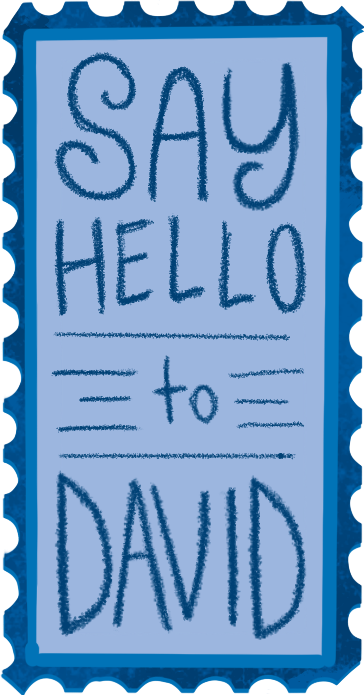 SAY
HELLO
to
DAVID